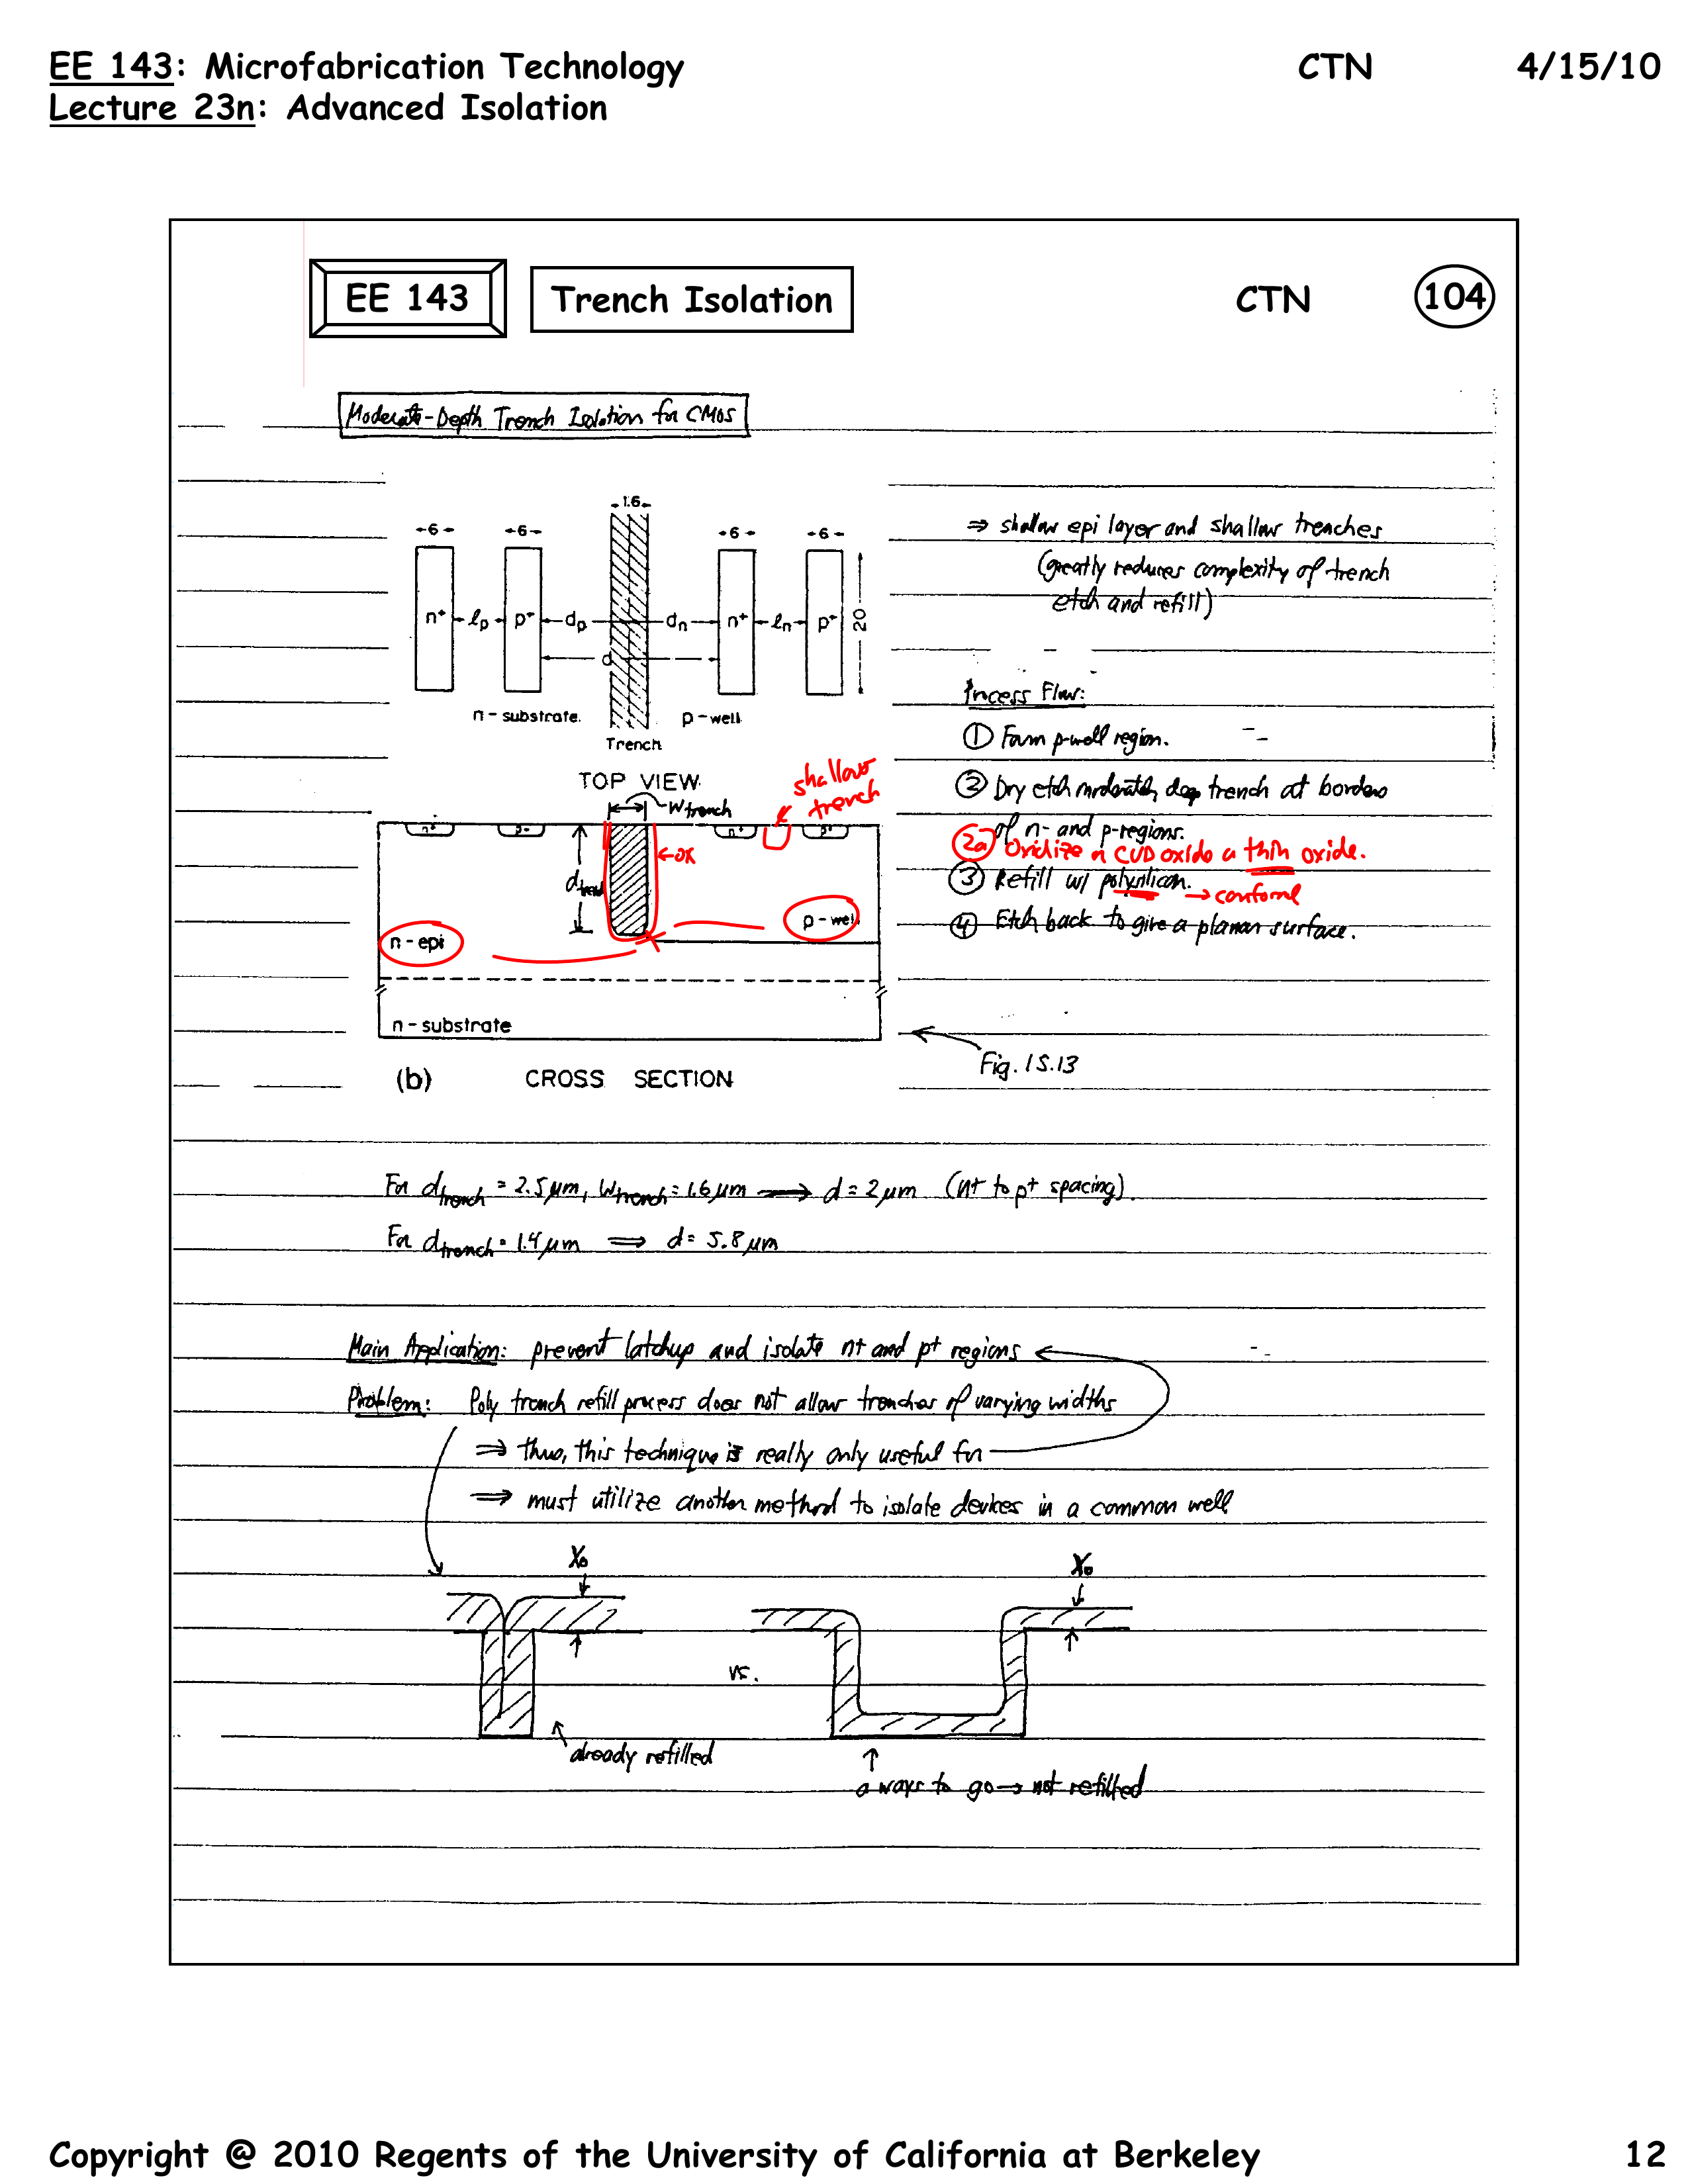 EE 143: Microfabrication Technology CTN 4/15/10
Lecture 23n: Advanced Isolation
EE 143 Trench Isolation CTN 104
Moderate-Depth Trench Isolation for CMOS
1.6
6 6 6 6
n+ lp p+ dp dn n+ ln p+ 20
d
n-substrate p-well
Trench
TOP VIEW
⇒ shallow epi layer and shallow trenches
(greatly reduces complexity of trench
etch and refill)
Process Flow:
① Form p-well region.
② Dry etch moderately deep trench at borders
of n- and p-regions.
2a Oxidize or CVD oxide a thin oxide.
③ Refill w/ polysilicon. → conformal
④ Etch back to give a planar surface.
shallow
trench
Wtrench
n+ p+ n+ p+
←ox
dtrench
p-well
n-epi
n-substrate
Fig. 15.13
(b) CROSS SECTION
For dtrench = 2.5μm, Wtrench = 1.6μm → d = 2μm (n+ to p+ spacing).
For dtrench = 1.4μm ⇒ d = 5.8μm
Main Application: prevent latchup and isolate n+ and p+ regions
Problem: Poly trench refill process does not allow trenches of varying widths
⇒ thus, this technique is really only useful for
⇒ must utilize another method to isolate devices in a common well
Xo Xo
vs.
already refilled
a ways to go → not refilled
Copyright @ 2010 Regents of the University of California at Berkeley 12